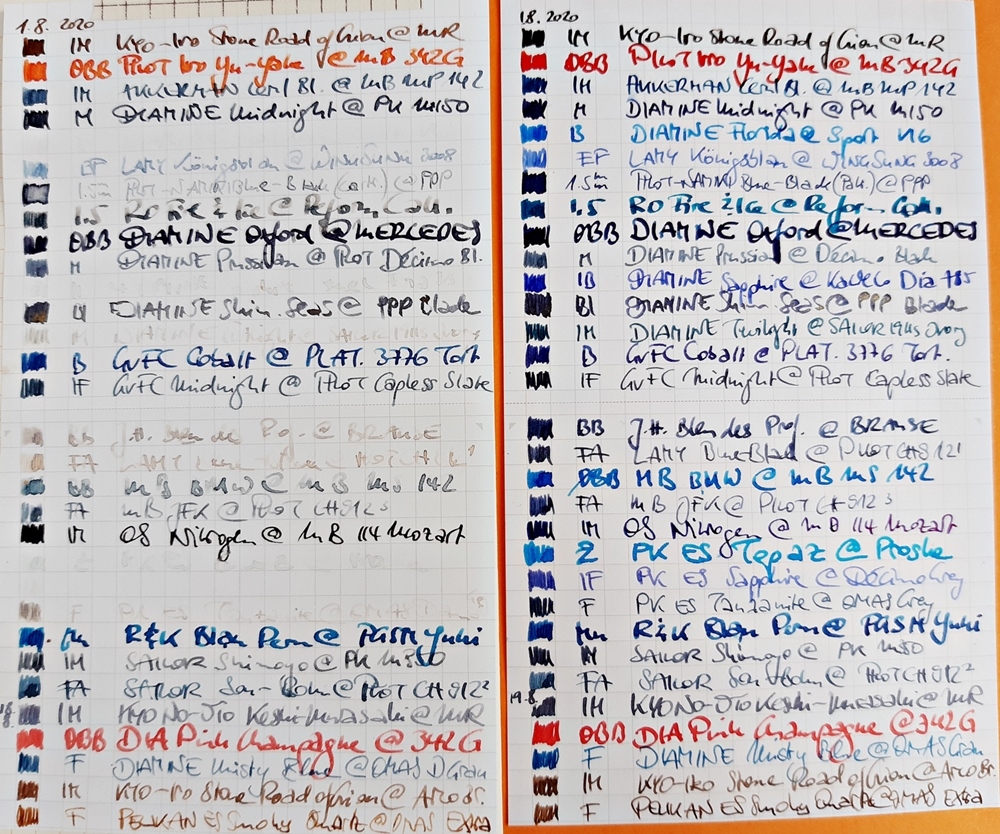 1.8. 2020
IM KYO-Iro Stone Road of Gion @ MR
OBB PILOT Iro Yu-Yake @ MB 342G
IM AKKERMAN Bl. @ MB MP 142
M DIAMINE Midnight @ PK M150
EF LAMY Königsblau @ WINGSUNG 3008
1.5mm PILOT-NAMIKI Blue-Black @ PPP
1.5 RO Fire & Ice @ Reform Call.
OBB DIAMINE Oxford @ MERCEDES
M DIAMINE Prussian @ PILOT Décimo Bl.
DIAMINE Shim. Seas @ PPP Blade
B GvFC Cobalt @ PLAT. 3776 Tort
IF GvFC Midnight @ PILOT Capless Slate
BB J.H. Blau des @ BRAUSE
FA LAMY
BB MB BMW @ MB MS 142
FA MB JFK @ PILOT CH912³
IM OS Nitrogen @ MB 114 Mozart
F
Mu R&K Blau Perm @ PLSM Yuki
IM SAILOR Shimayo @ PK M350
FA SAILOR Sou-Boku @ PILOT CH912²
IM KYO NO-Oto Keshi-Murasaki @ MR
OBB DIA Pink Champagne @ 342G
F DIAMINE Misty Blue @ OMAS
IM KYO-Iro Stone Road of Gion @ Arco Br.
F PELIKAN ES Smoky Quartz @ OMAS EXtra
1.8. 2020
IM KYO-Iro Stone Road of Gion @ MR
OBB PILOT Iro Yu-Yake @ MB 342G
IM AKKERMAN Bl. @ MB MP 142
M DIAMINE Midnight @ PK M150
B DIAMINE Florida @ Sport V16
EF LAMY Königsblau @ WINGSUNG 3008
1.5mm PILOT-NAMIKI Blue-Black @ PPP
1.5 RO Fire & Ice @ Reform Call.
OBB DIAMINE Oxford @ MERCEDES
M DIAMINE Prussian @ Décimo Black
IB DIAMINE Sapphire @ KaWeCo Dia 785
Bl DIAMINE Shim. Seas @ PPP Blade
IM DIAMINE Twilight @ SAILOR
B GvFC Cobalt @ PLAT. 3776 Tort.
IF GvFC Midnight @ PILOT Capless Slate
BB J.H. Blau des Prof. @ BRAUSE
FA LAMY Blue Black @ PILOT CH912¹
OBB MB BMW @ MB MS 142
FA MB JFK @ PILOT CH912³
IM OS Nitrogen @ MB 114 Mozart
2 PK ES Topaz @ Proska
IF PK ES Sapphire @ Décimo Grey
F PK ES Tanzanite @ OMAS Grey
Mu R&K Blau Perm @ PLSM Yuki
IM SAILOR Shimayo @ PK M350
FA SAILOR Sou-Boku @ PILOT CH912²
19.8 IM KYO NO-Oto Keshi-Murasaki @ MR
OBB DIA Pink Champagne @ 342G
F DIAMINE Misty Blue @ OMAS Grau
IM KYO-Iro Stone Road of Gion @ Arco Br.
F PELIKAN ES Smoky Quartz @ OMAS EXtra